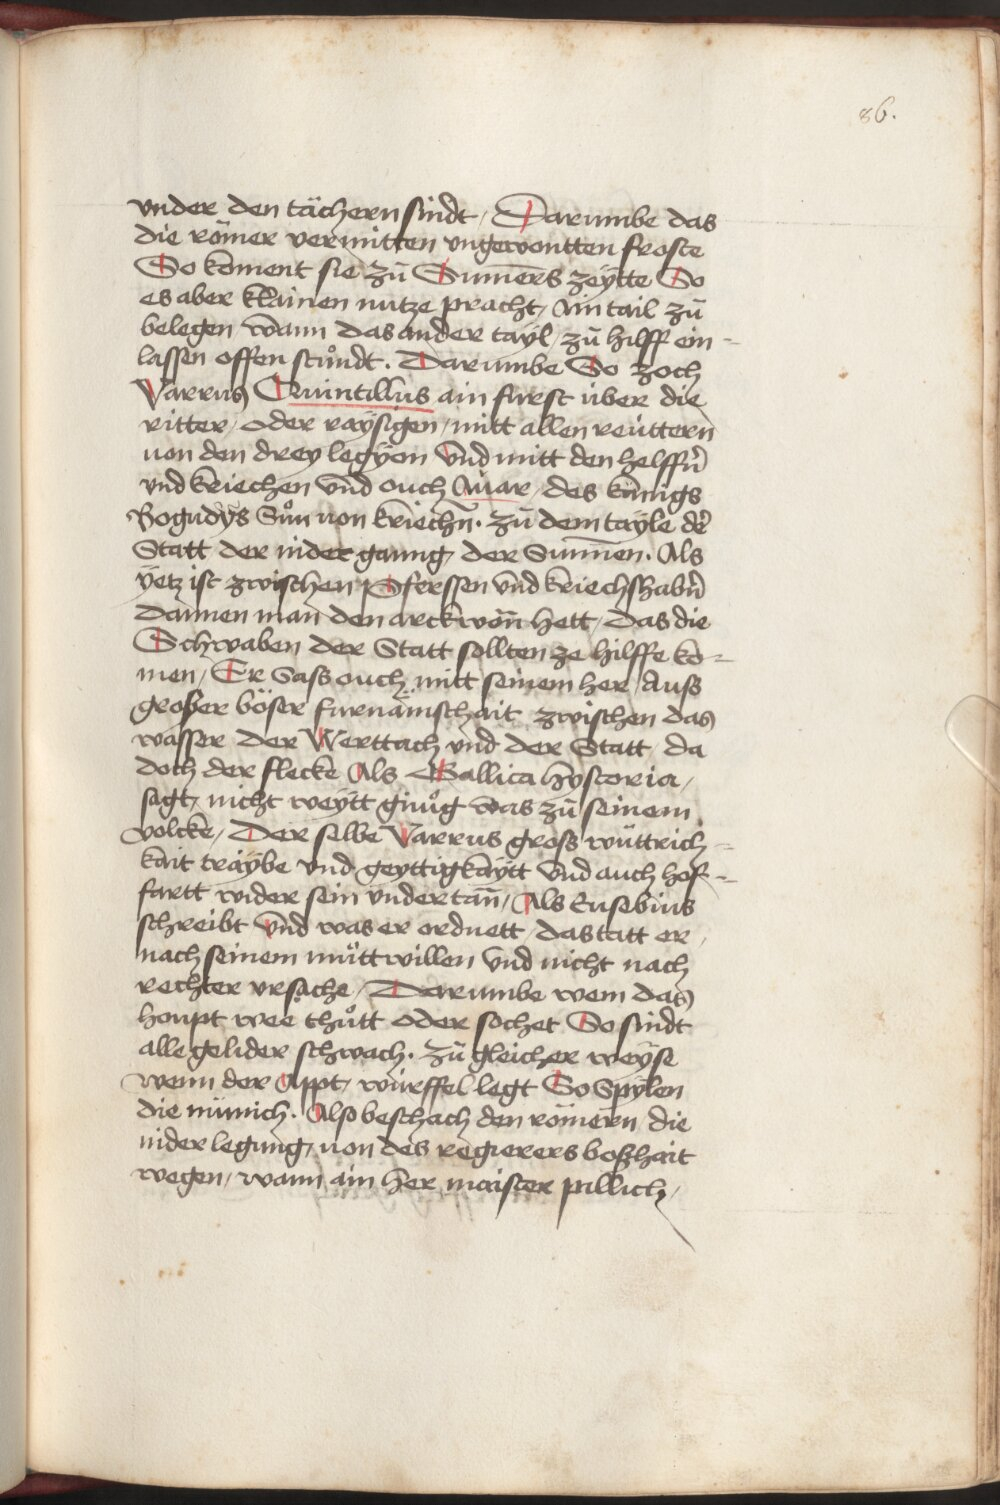 86.
vnder den tächern sindt / Darumbe das
die römer vermitten vngewontten froste
So koment sie zů Sumers zeytte So
es aber klainen nutze pracht / Ain tail zů
belegen wann das ander tayl / zů hilff ein-
lassen offen stůndt. Darumbe So zoch
Varrus Quintillus ain furst über die
ritter / oder raÿsigen / mitt allen reüttern
uon den dreÿ legÿon Vnd mitt den helffrn̄
vnd kriechen vnd ouch Auar / des künigs
Bogudys Sůn uon kriechn̄. zů dem tayle der
Statt der nider ganng / der Sunnen. Als
yetz ist zwischen Pfersen vnd kriechshabrn̄
dannen man den arckwon̄ hett / das die
Schwaben der Statt sollten ze hilffe ko-
men / Er Sass ouch mitt seinem her / Auss
grosser böser furnämschait zwischen das
wasser der Werttach vnd der Statt da
doch der flecke Als Gallica hystoria /
sagt / nicht weytt ginůg was zů seinem
volcke / Der selbe Varrus gross wüttrich-
kait traybe vnd geyttigkaytt vnd auch hof-
fartt wider sein vndertan̄ / Als Eusebius
schreibt vnd was er ordnett / das tatt er /
nach seinem můttwillen vnd nicht nach
rechter vrsache / Darumbe wem das
houpt wee thůtt oder sochet So sindt
alle gelider schwach. zů gleicher weyse
wenn der Appt / würffel legt So Spylen
die münich. Also beschach den römern / die
nider legung / uon des regierers boßhait
wegen / wann ain her maister pillich /